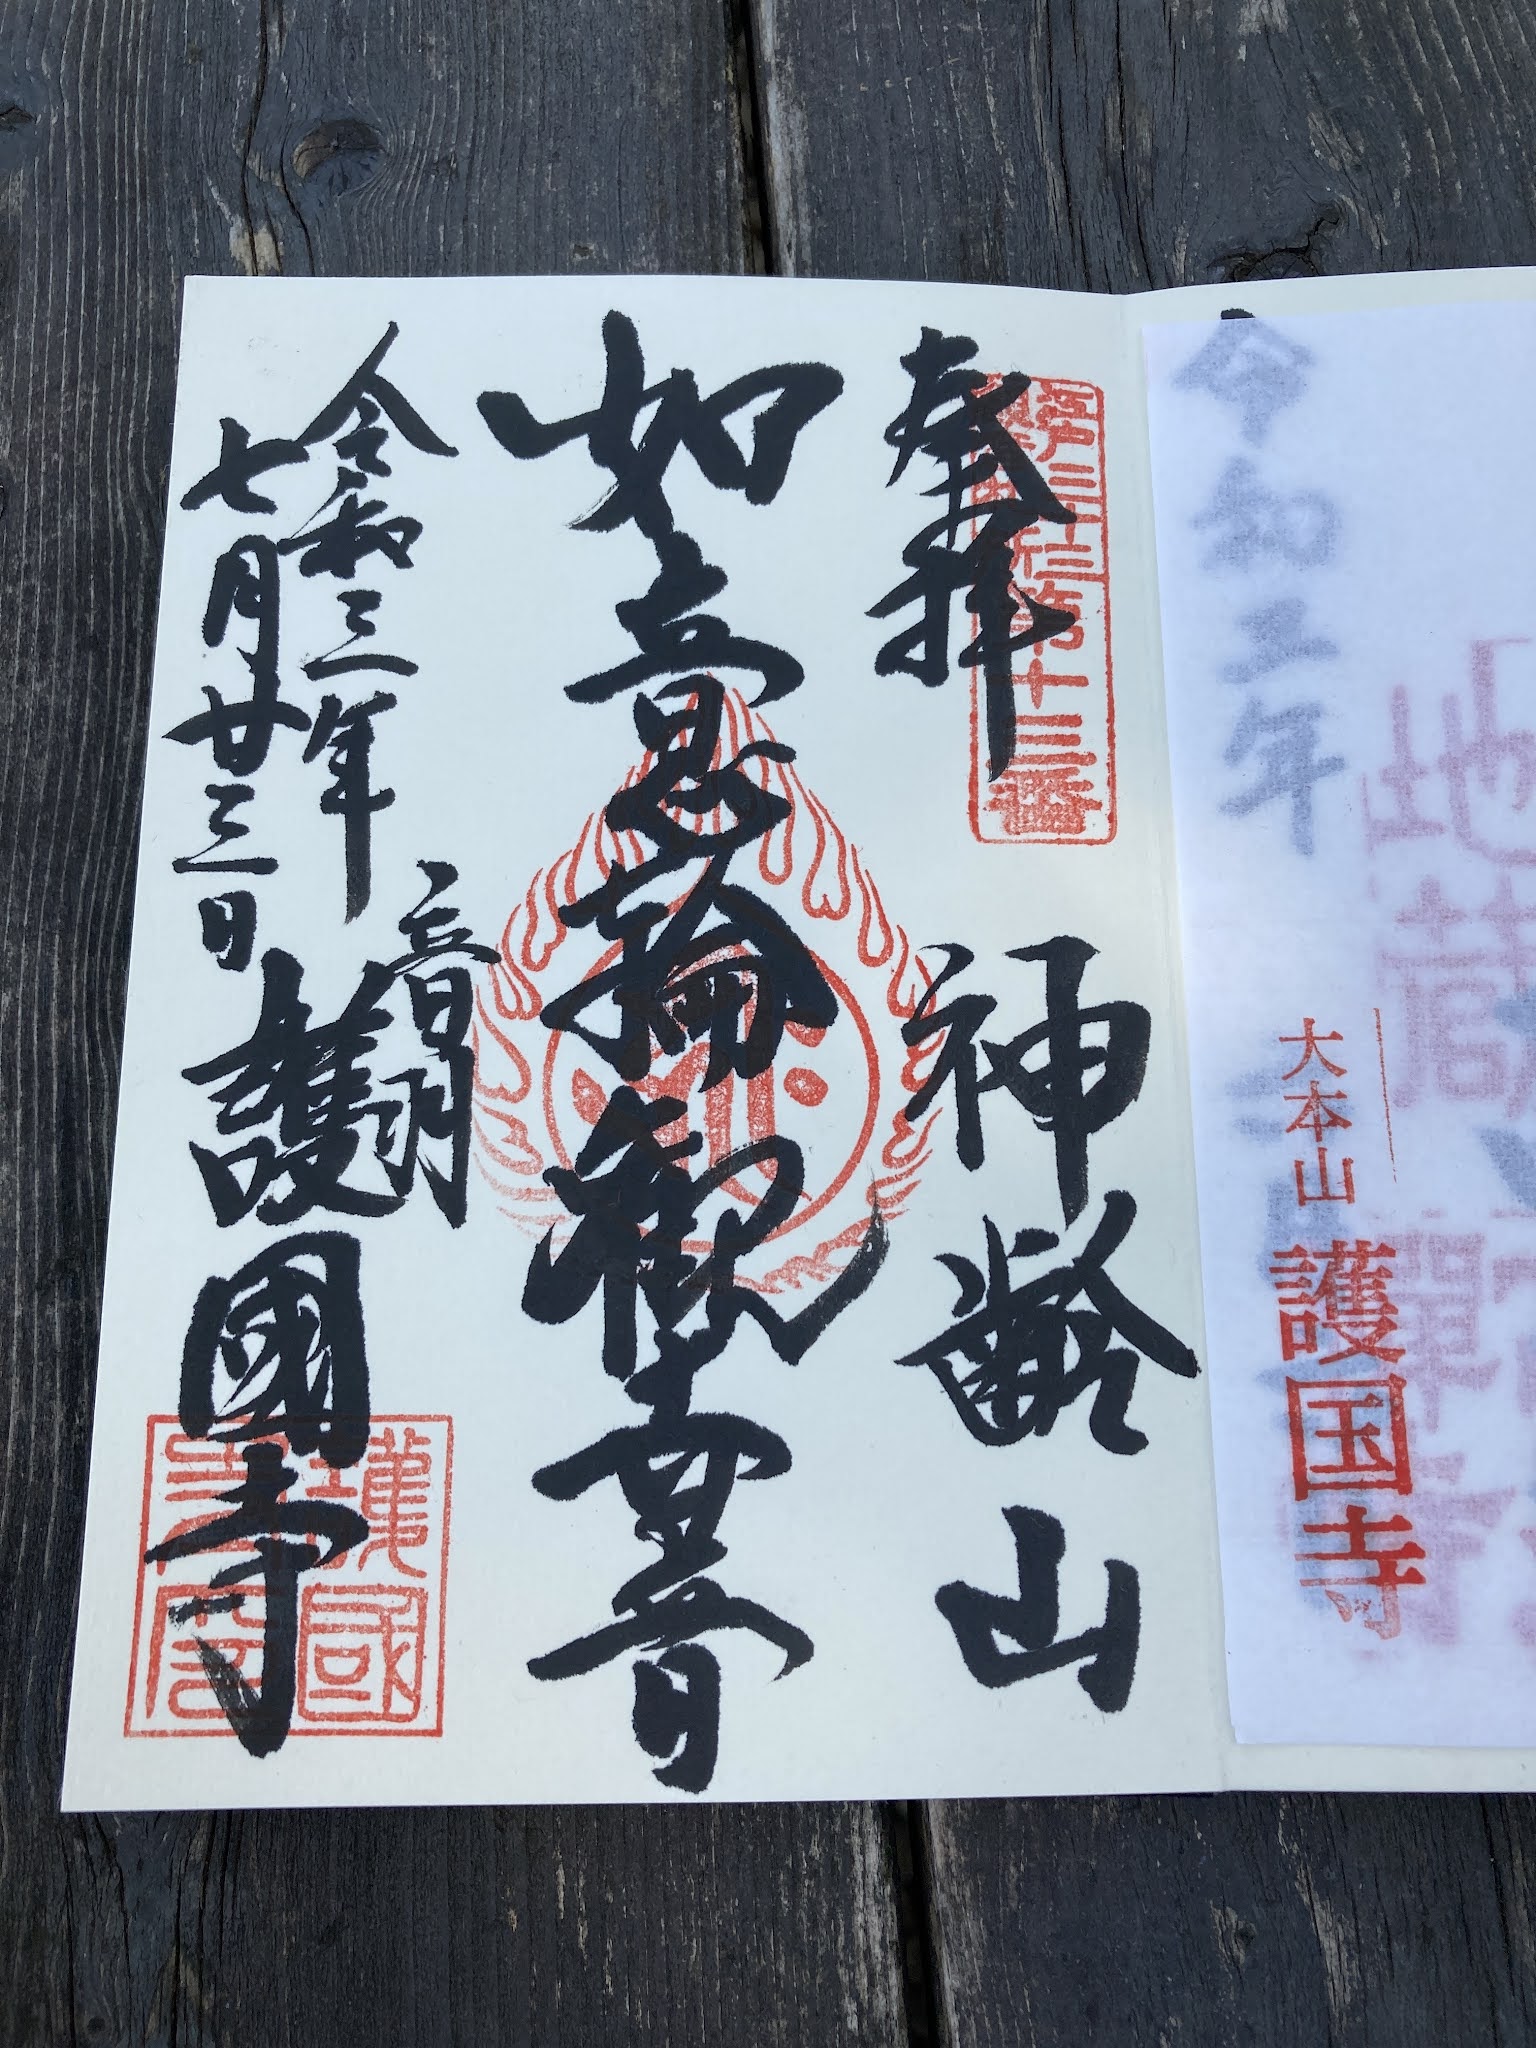 令和三年
大本山 護国寺
奉拝
第十三番
神齢山
如意輪観世音
令和三年
七月廿三日
音羽
護國寺
護國寺印